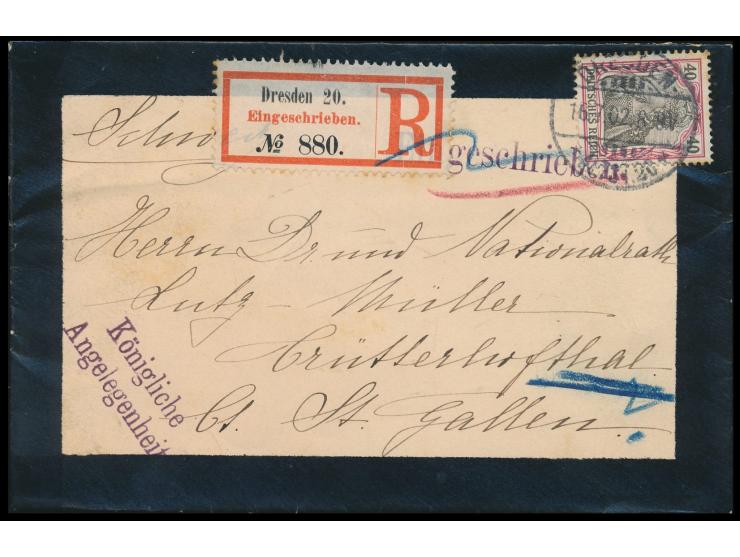 Dresden 20.
Eingeschrieben.
№ 880.
R
40 DEUTSCHES REICH 40
geschrieben.
Herrn Dr. und Nationalrath
Lutz - Müller
Ct. St. Gallen.
Königliche
Angelegenheit